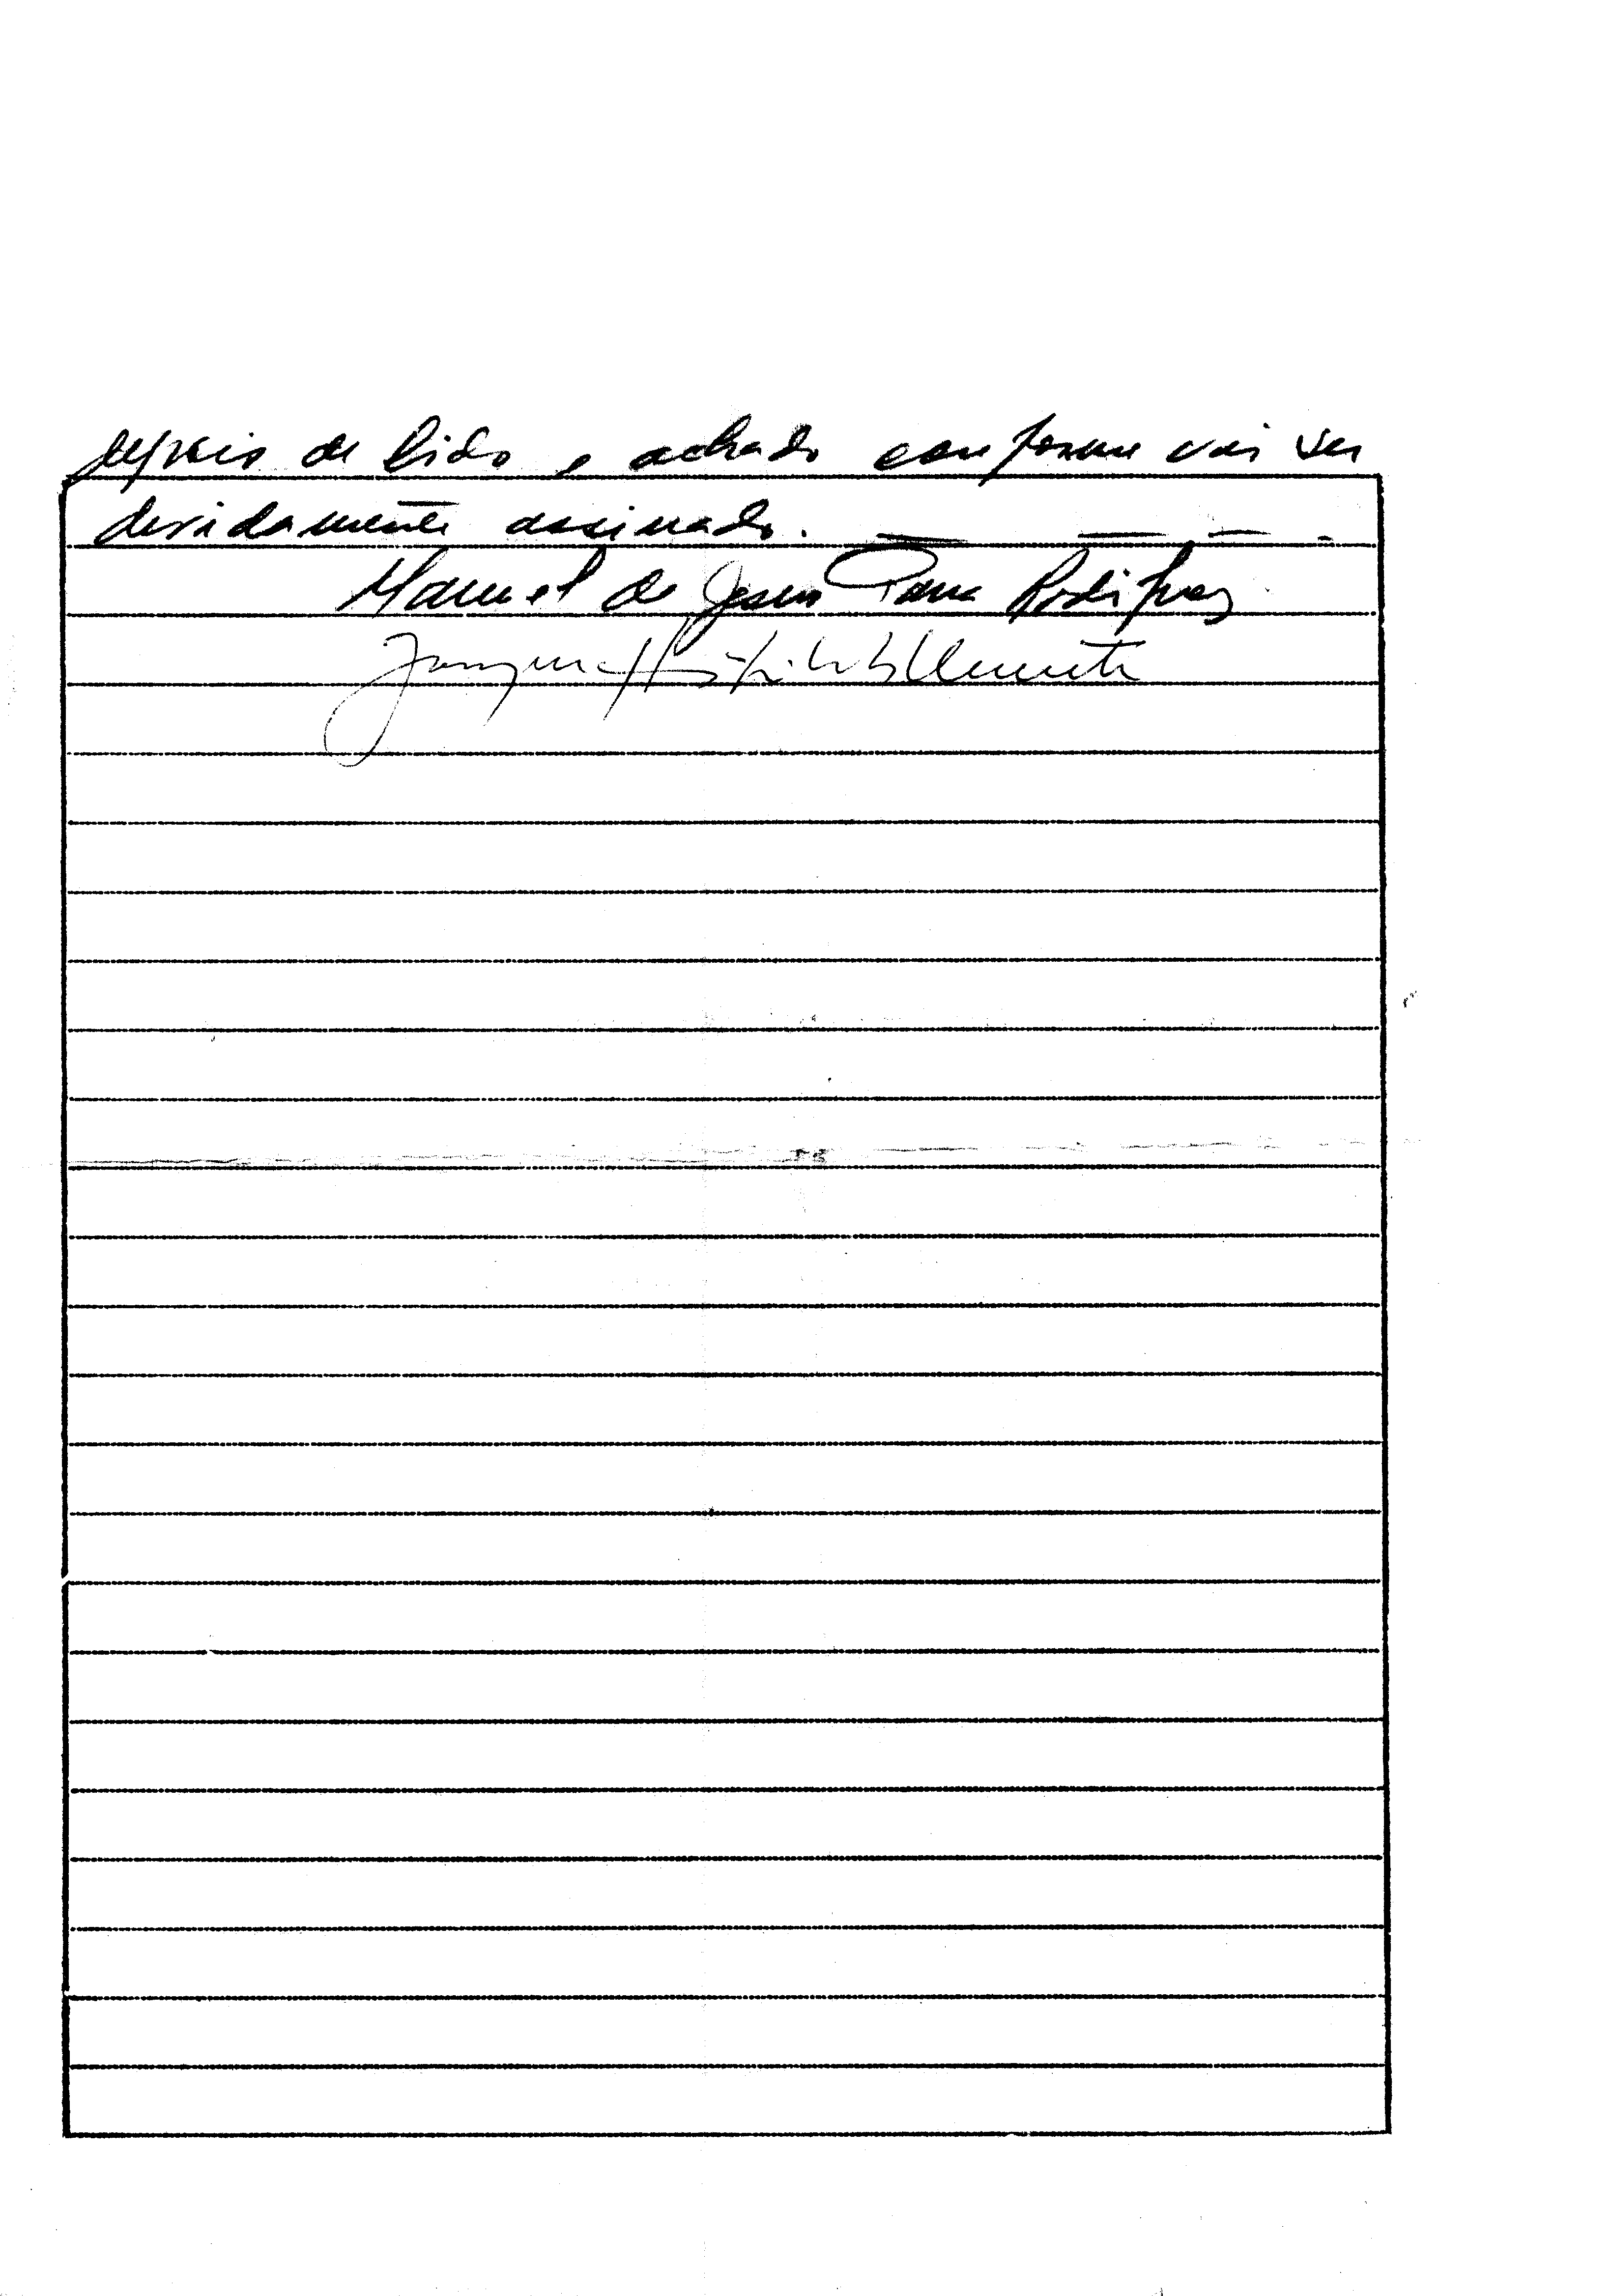 depois de lido e achado conforme vai ser
devidamente assinado.
Manuel de Jesus Rodrigues